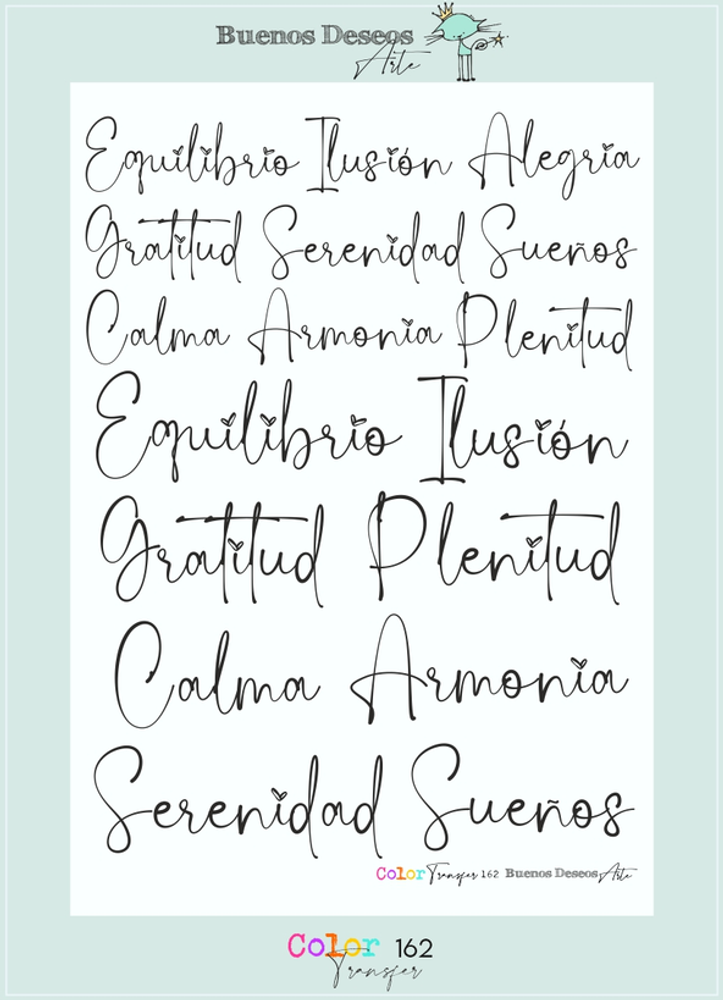 Buenos Deseos
Arte
Equilibrio Ilusión Alegria
Gratitud Serenidad Sueños
Calma Armonia Plenitud
Equilibrio Ilusión
Gratitud Plenitud
Calma Armonia
Serenidad Sueños
Color Transfer 162 Buenos Deseos Arte
Color 162
Transfer